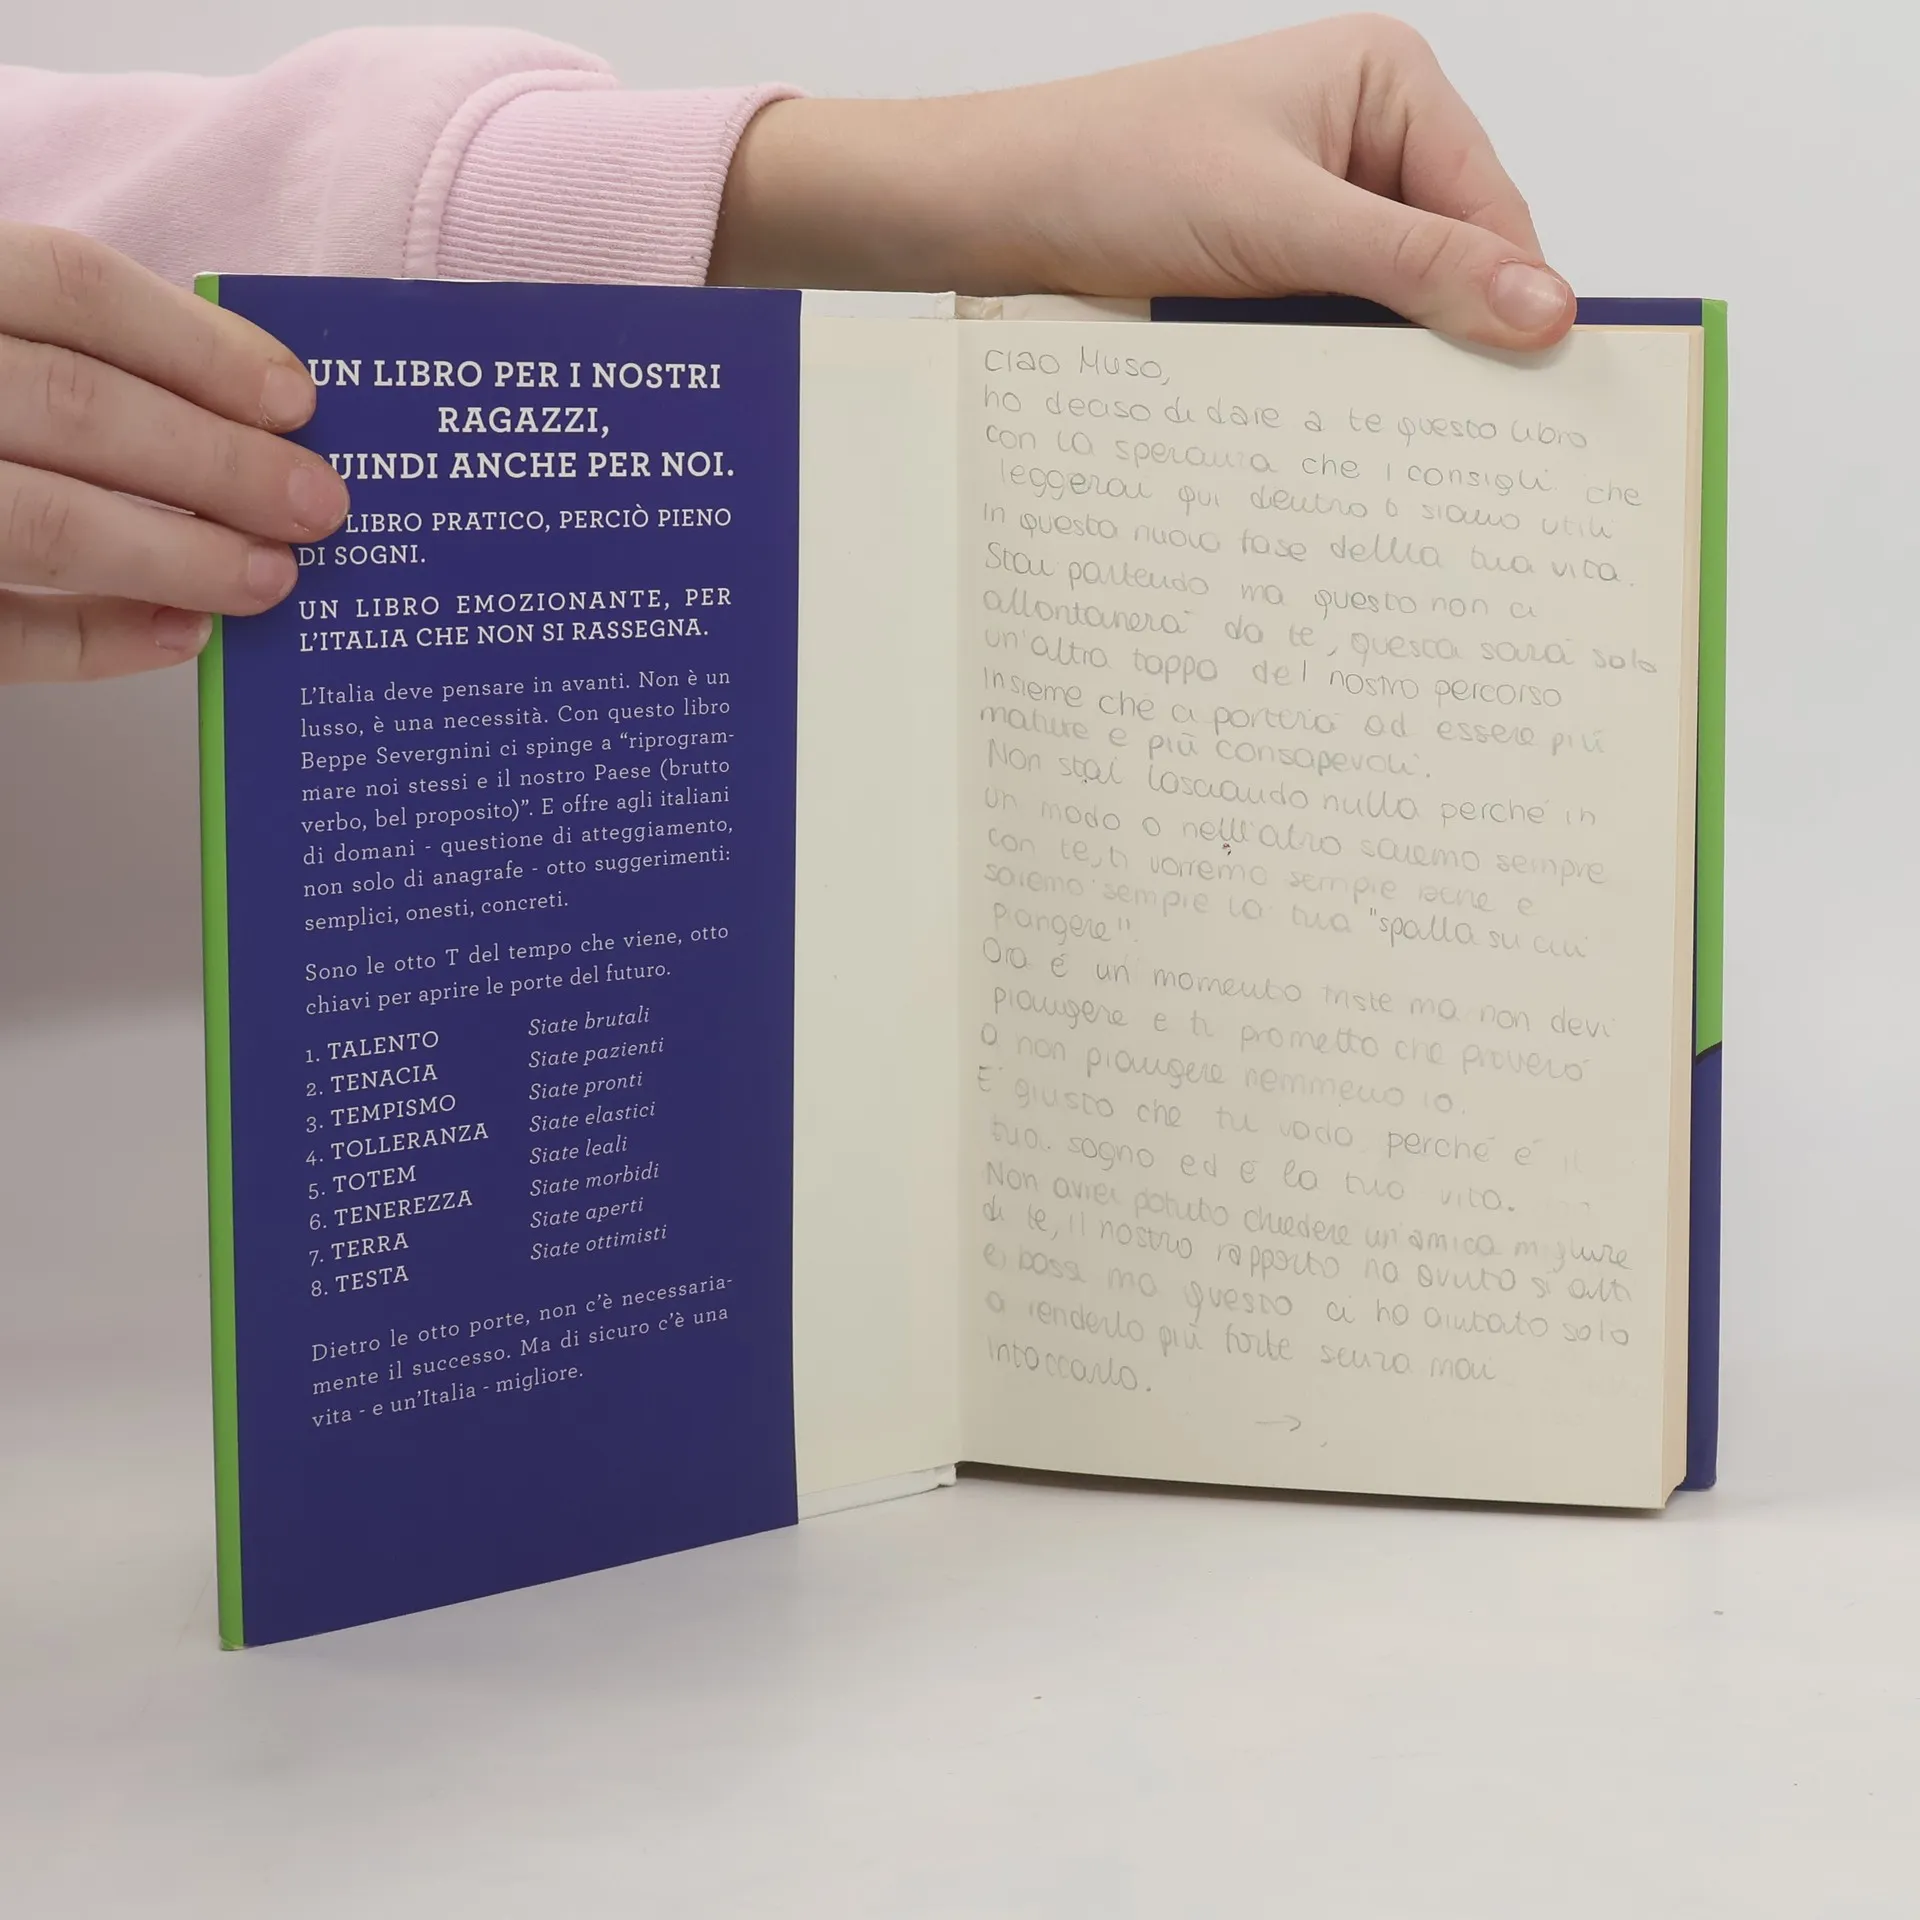 UN LIBRO PER I NOSTRI
RAGAZZI,
UINDI ANCHE PER NOI.
LIBRO PRATICO, PERCIÒ PIENO
DI SOGNI.
UN LIBRO EMOZIONANTE, PER
L'ITALIA CHE NON SI RASSEGNA.
L'Italia deve pensare in avanti. Non è un
lusso, è una necessità. Con questo libro
Beppe Severgnini ci spinge a "riprogram-
mare noi stessi e il nostro Paese (brutto
verbo, bel proposito)". E offre agli italiani
di domani - questione di atteggiamento,
non solo di anagrafe - otto suggerimenti:
semplici, onesti, concreti.
Sono le otto T del tempo che viene, otto
chiavi per aprire le porte del futuro.
1. TALENTO Siate brutali
2. TENACIA Siate pazienti
3. TEMPISMO Siate pronti
4. TOLLERANZA Siate elastici
5. TOTEM Siate leali
6. TENEREZZA Siate morbidi
7. TERRA Siate aperti
8. TESTA Siate ottimisti
Dietro le otto porte, non c'è necessaria-
mente il successo. Ma di sicuro c'è una
vita - e un'Italia - migliore.
Ciao Muso,
ho deciso di dare a te questo libro
con la speranza che i consigli che
leggerai qui dentro ti siano utili
in questa nuova fase della tua vita.
Stai partendo ma questo non ci
allontanerà da te, questa sarà solo
un'altra tappa del nostro percorso
insieme che ci porterà ad essere più
mature e più consapevoli.
Non stai lasciando nulla perché in
un modo o nell'altro saremo sempre
con te, ti vorremo sempre bene e
saremo sempre la tua "spalla su cui
piangere".
Ora è un momento triste ma non devi
piangere e ti prometto che proverò
a non piangere nemmeno io.
E' giusto che tu vada perché è il
tuo sogno ed è la tua vita.
Non avrei potuto chiedere un'amica migliore
di te, il nostro rapporto ha avuto si alti
e bassi ma questo ci ha aiutato solo
a renderlo più forte senza mai
intaccarlo.
→